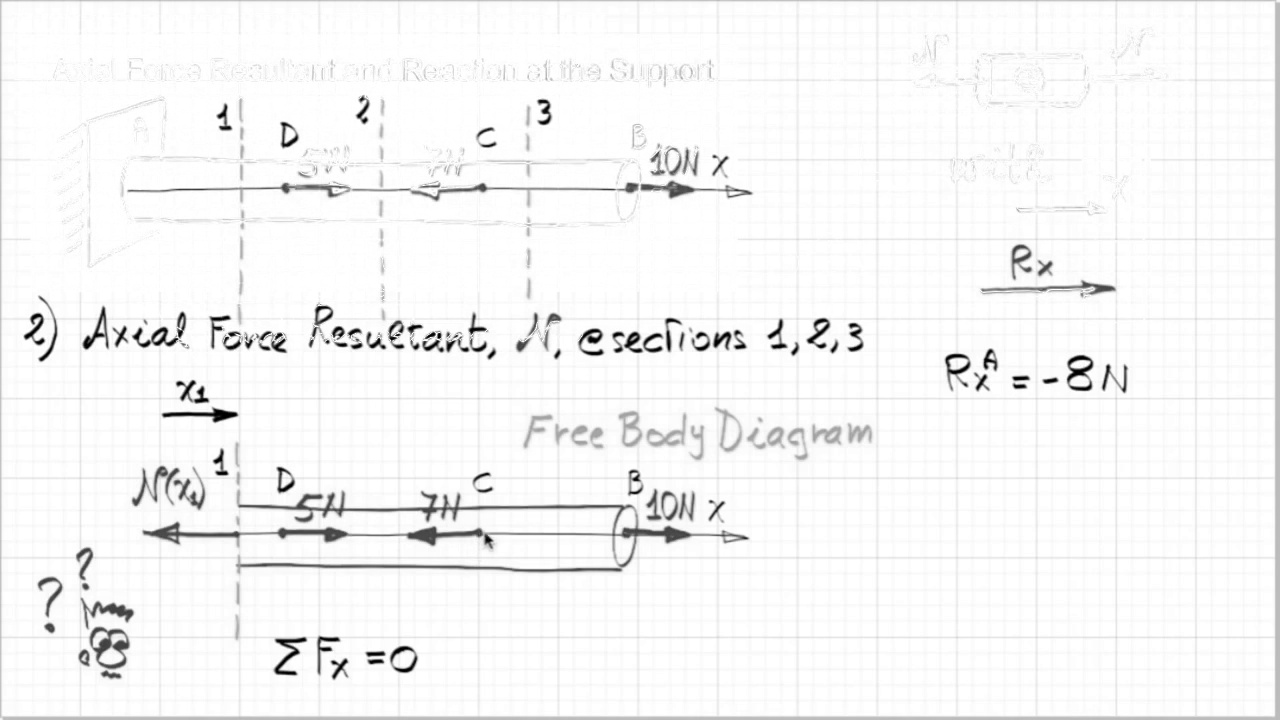 Axial Force Resultant and Reaction at the Support
1 2 3
A D C B
5N 7N 10N x
N N
with
x
Rx
2) Axial Force Resultant, N, @sections 1,2,3
RxA = -8N
x1
Free Body Diagram
N(x1) 1 D C B
5N 7N 10N x
? ?
ΣFx = 0